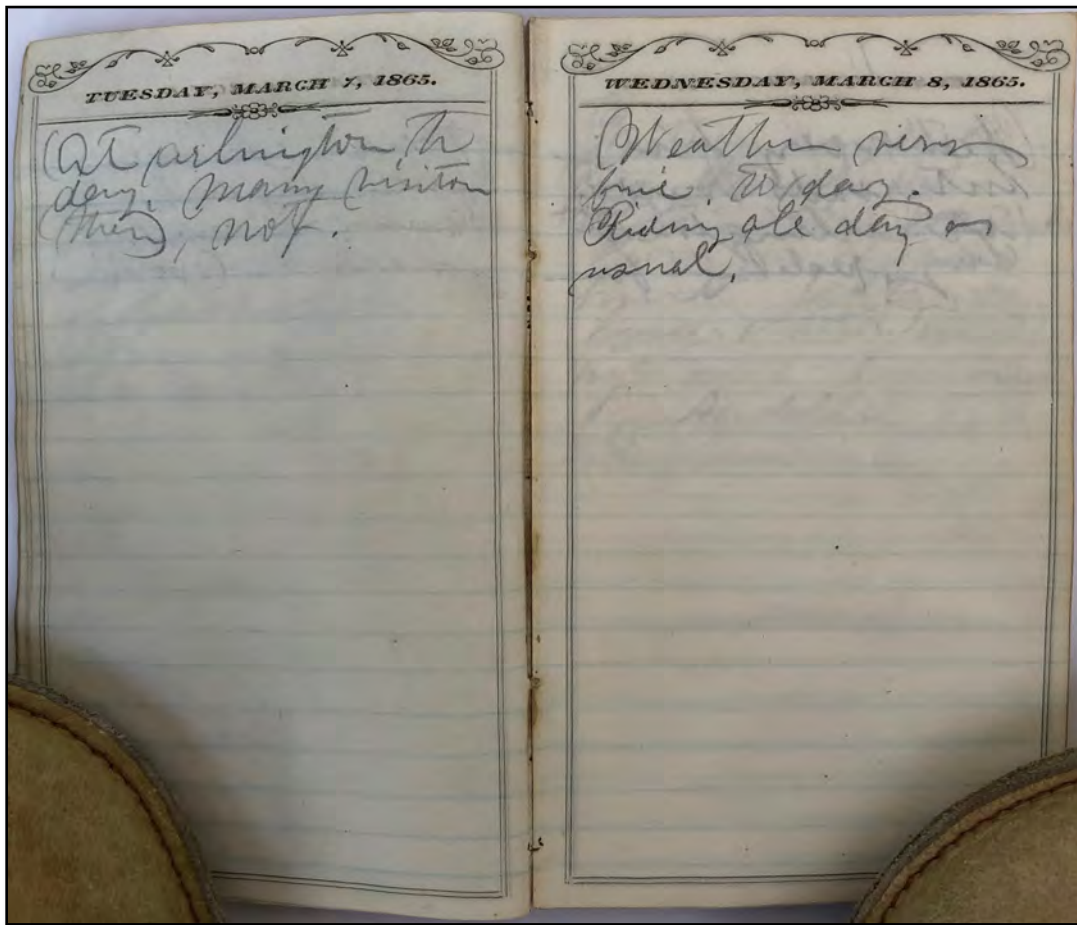 TUESDAY, MARCH 7, 1865.
At arlington, to
day, many visitors
there, not.
WEDNESDAY, MARCH 8, 1865.
Weather very
fine, to day.
Riding all day as
usual.